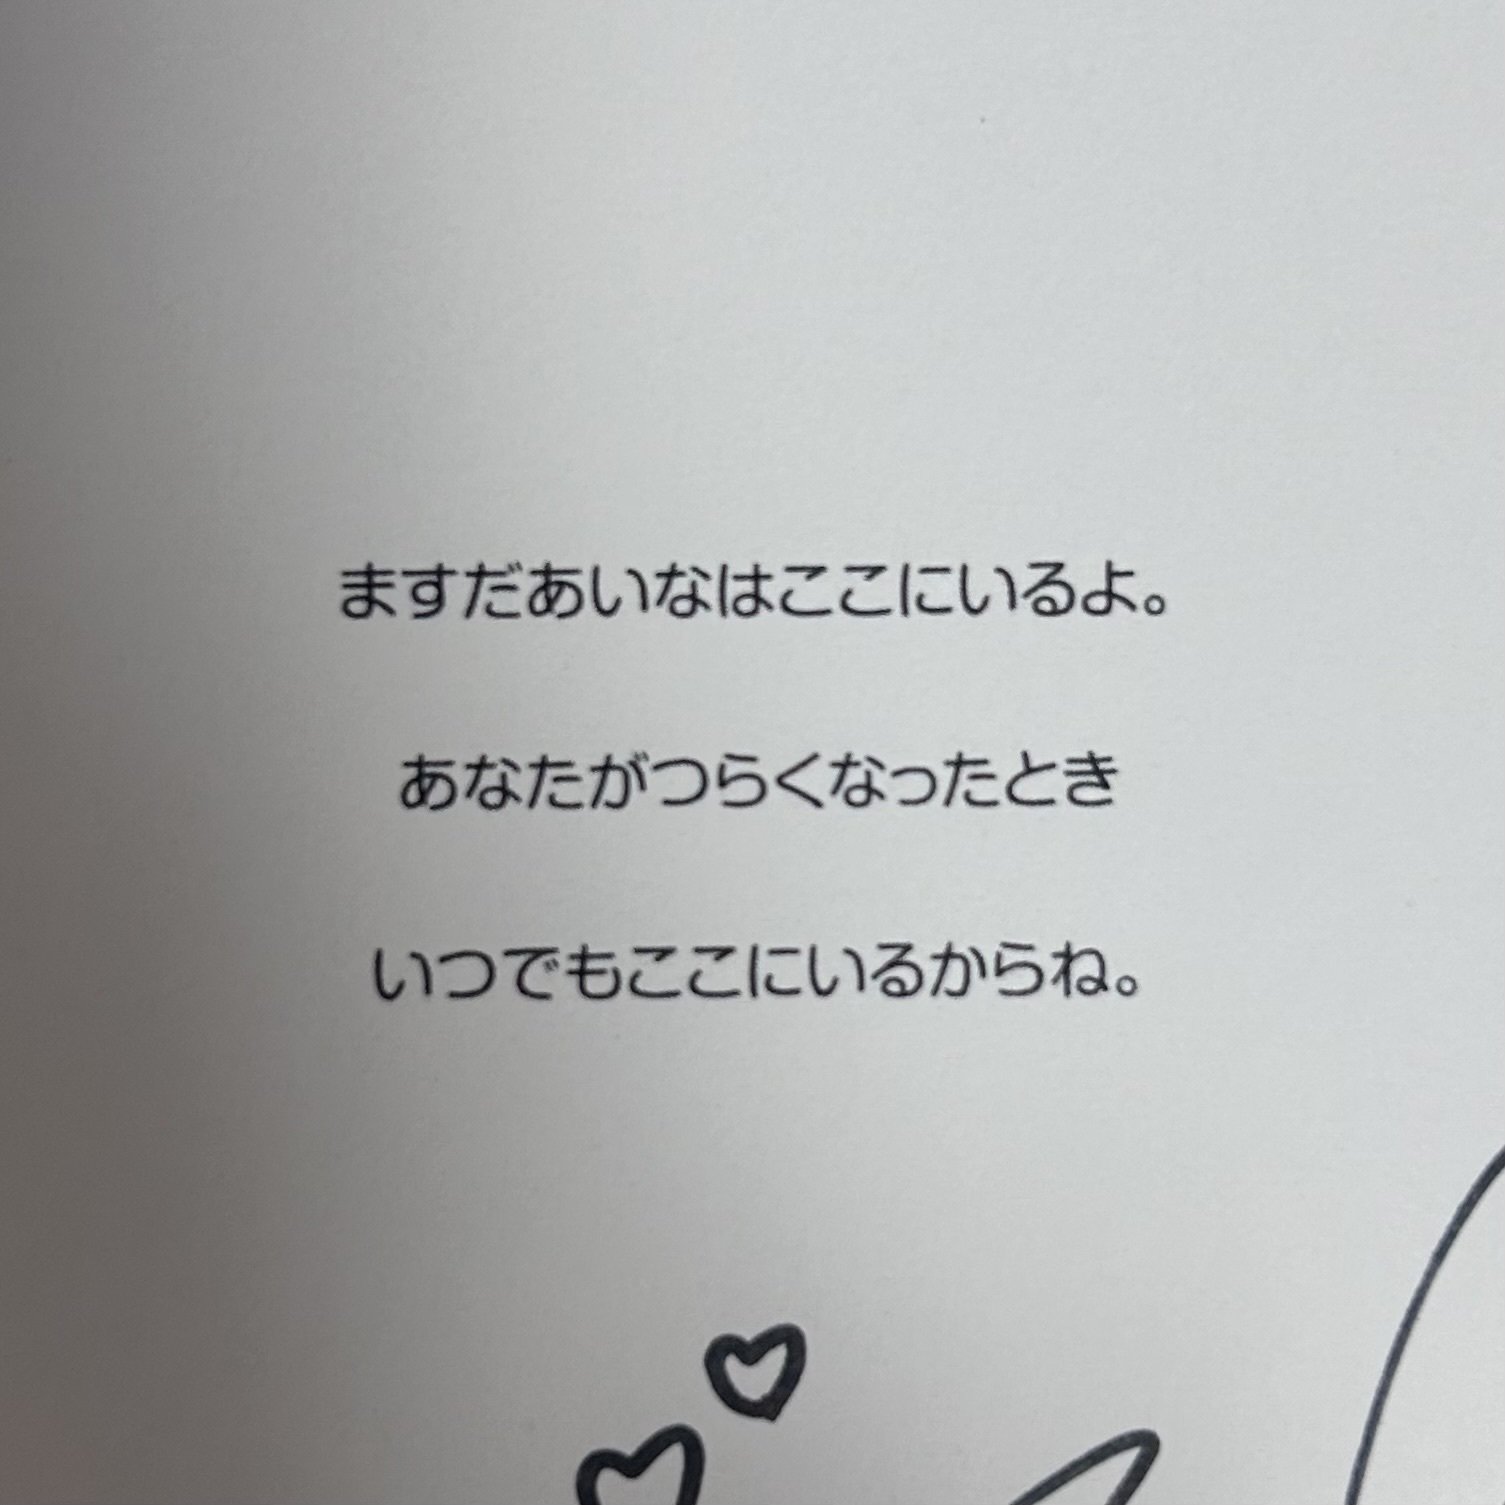 ますだあいなはここにいるよ。
あなたがつらくなったとき
いつでもここにいるからね。